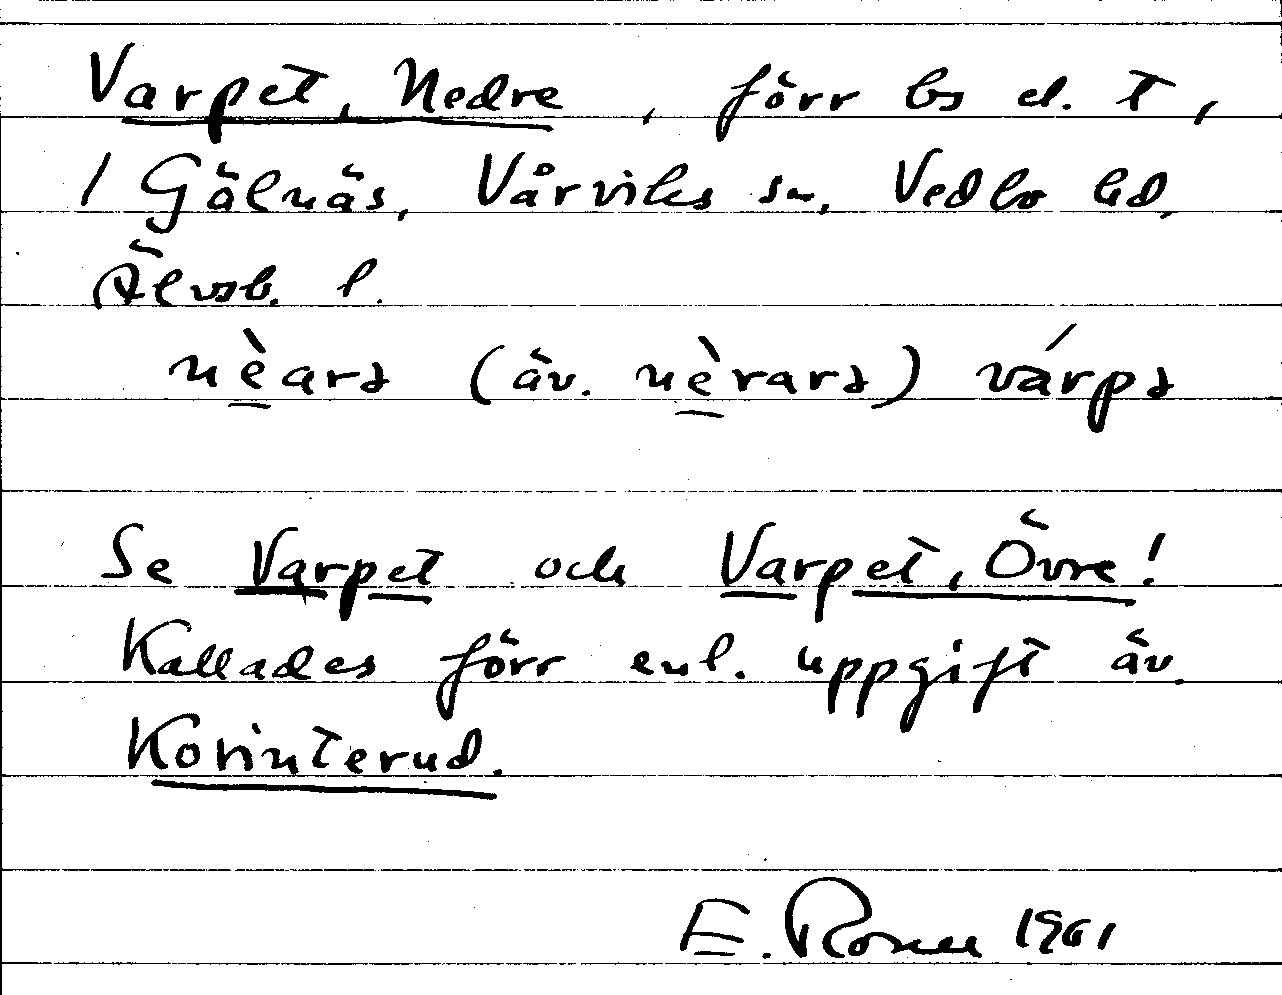 Varpet, Nedre, förr bs el. t,
i Gälnäs, Vårviks sn, Vedbo hd,
Älvsb. l.
nèarə (äv. nèrarə) várpə
Se Varpet och Varpet, Övre!
Kallades förr enl. uppgift äv.
Korinterud.
E. 1961